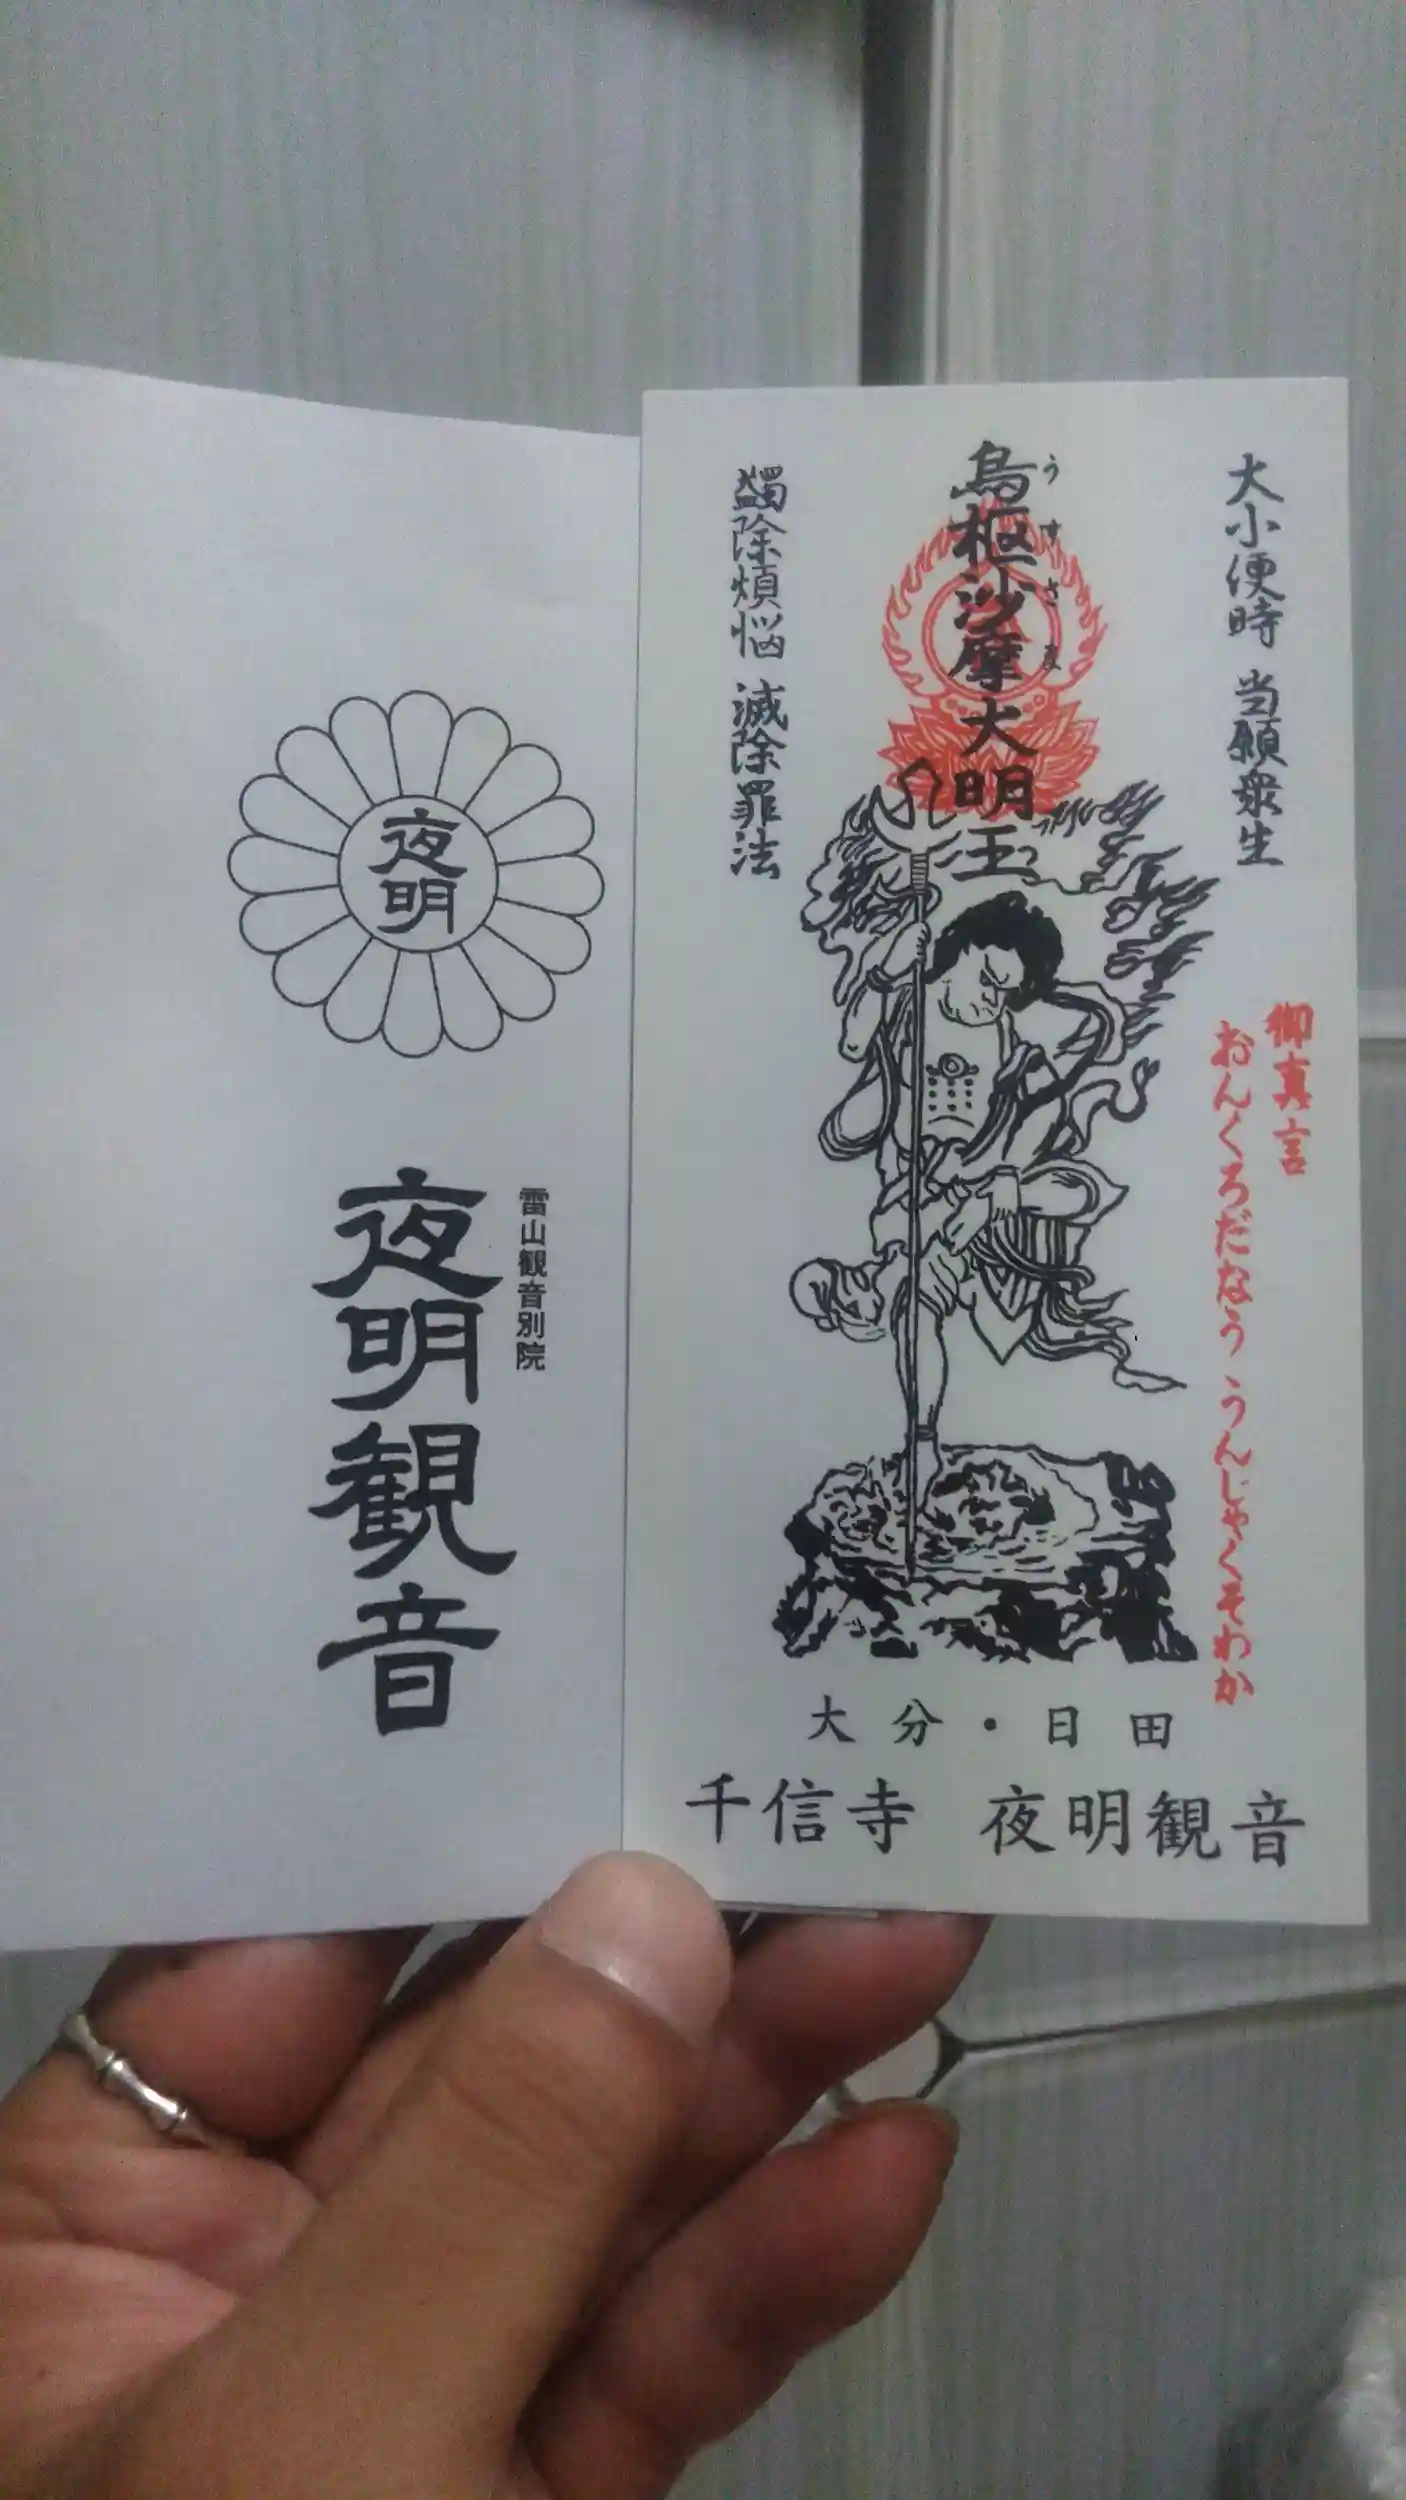 夜明
雷山観音別院
夜明観音
大小便時 当願衆生
烏枢沙摩大明王
うすさま
蠲除煩悩 滅除罪法
御真言
おんくろだなう うんじゃくそわか
大分・日田
千信寺 夜明観音